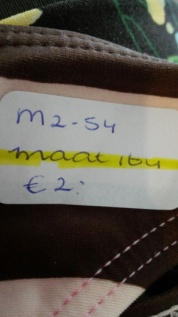 M2-54
maat 164
€ 2: